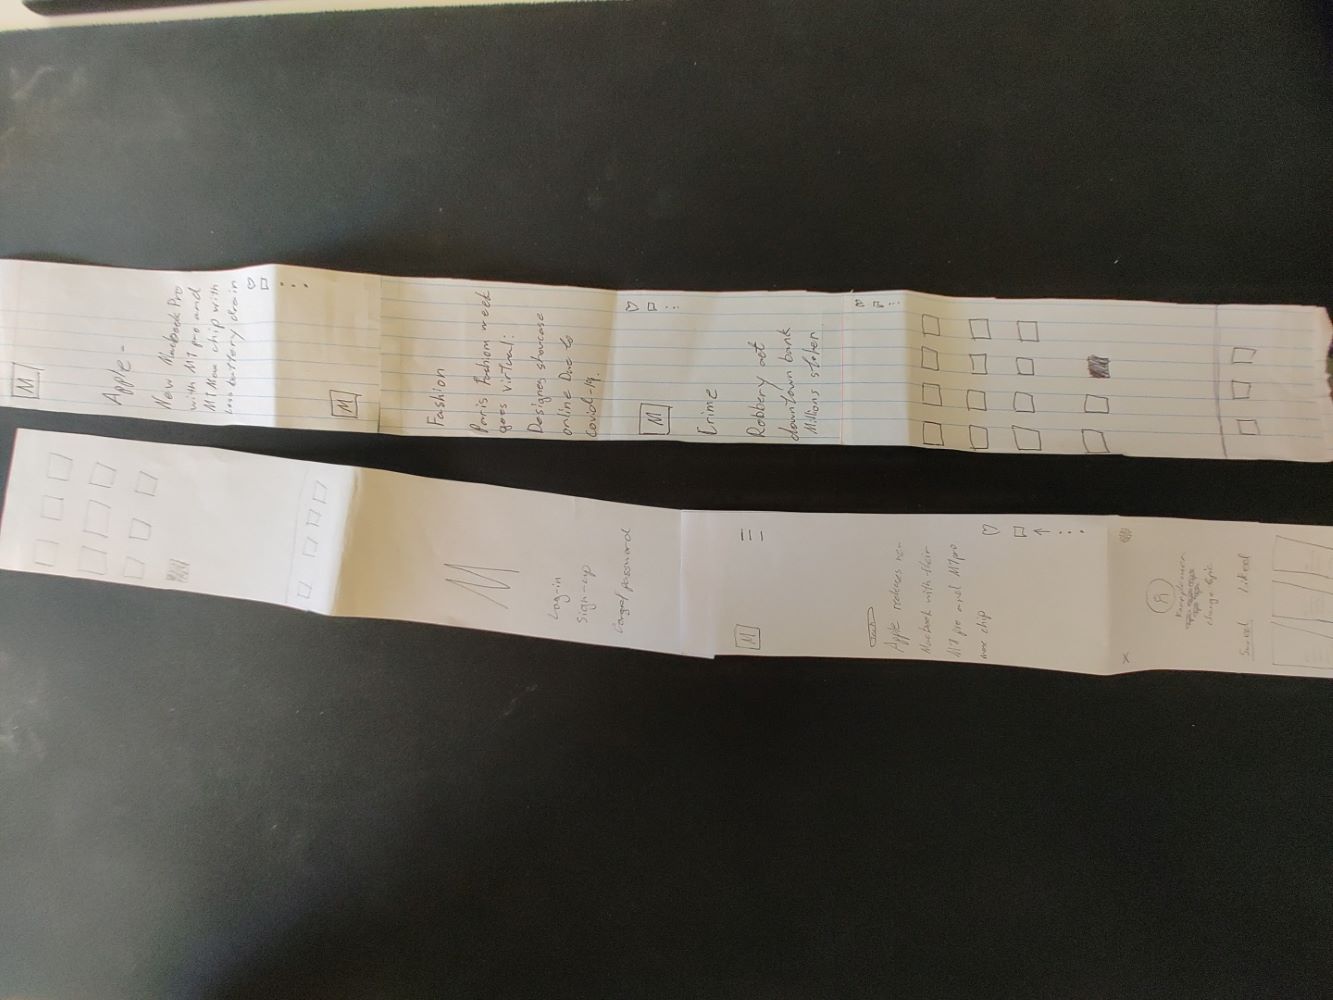 M
Log-in
Sign-up
Forget password
M
Tech
Apple releases new
Macbook with their
M1 pro and M1 pro
max chip
change Epic
Saved Liked
M
Apple -
New Macbook Pro
with M1 pro and
M1 Max chip with
Less battery drain
M
Fashion
Paris Fashion week
goes virtual:
Designes showcase
online Due to
covid-19.
M
Crime
Robbery at
downtown bank
Millions stolen